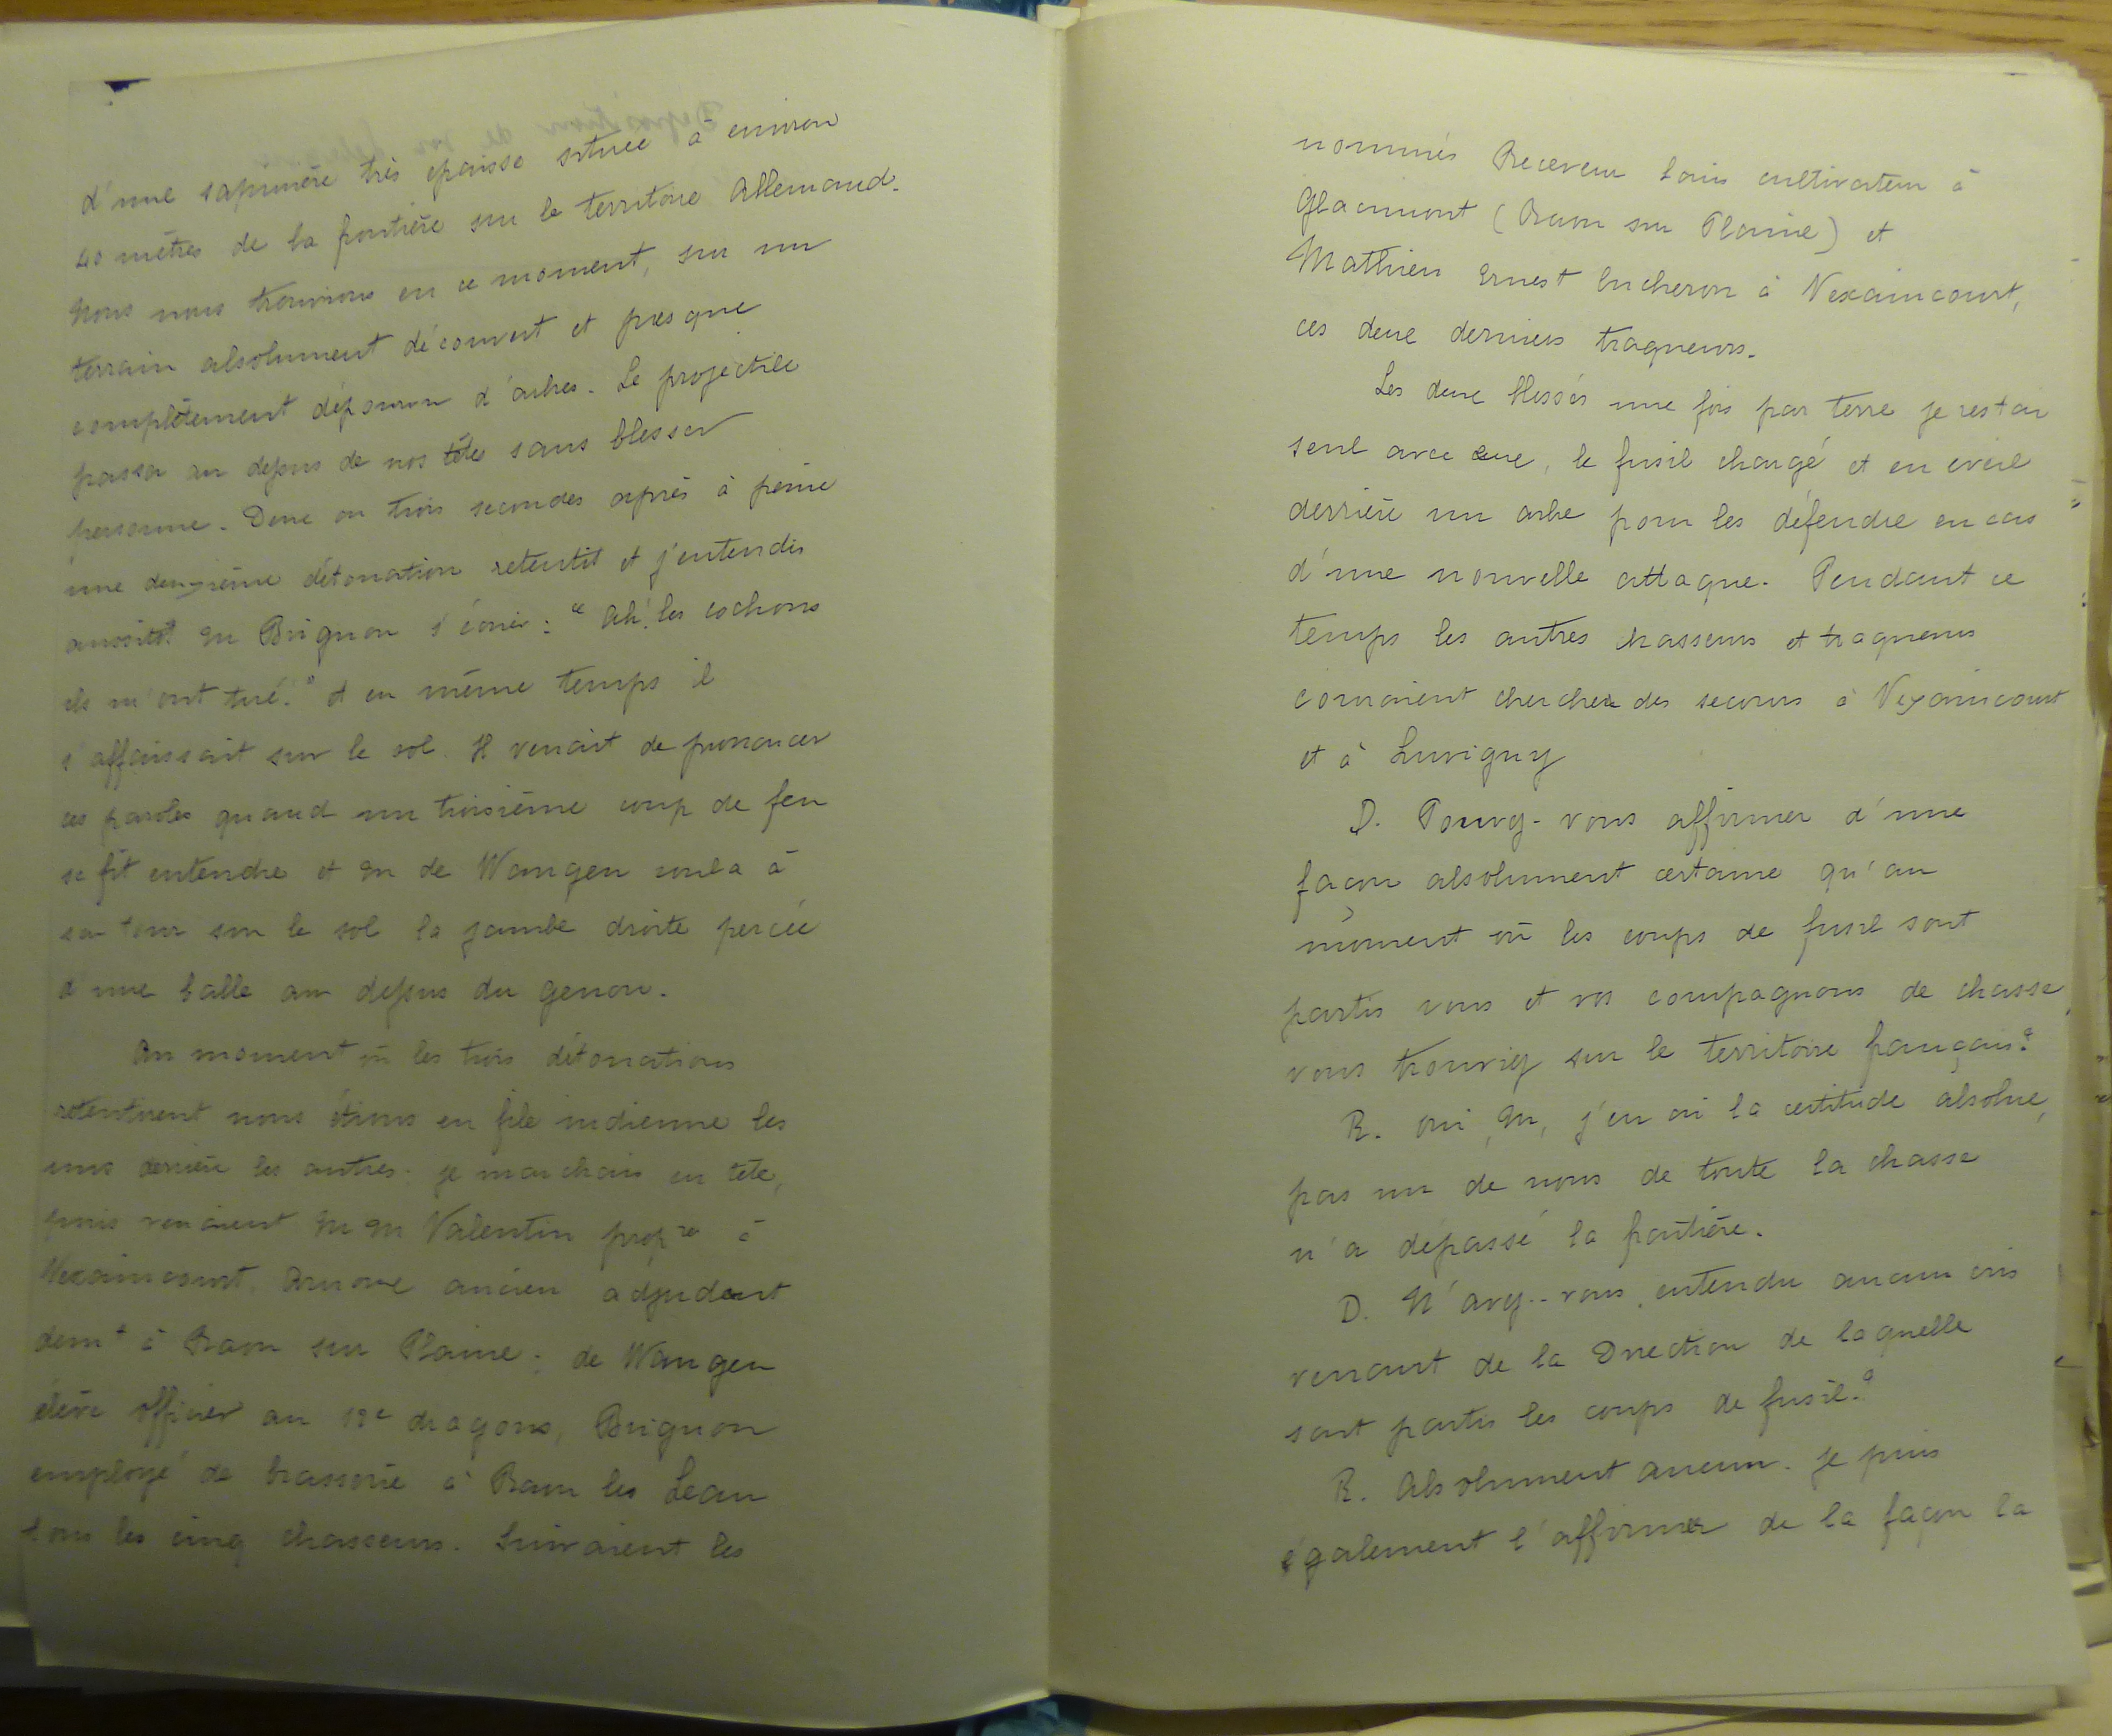 d'une sapinière très épaisse située à environ
40 mètres de la frontière sur le territoire Allemand.
Nous nous trouvions en ce moment, sur un
terrain absolument découvert et presque
complètement dépourvu d'arbres. Le projectile
passa au dessus de nos têtes sans blesser
personne. Deux ou trois secondes après à peine
une deuxième détonation retentit et j'entendis
aussitôt M Brignon s'écrier : "Ah! les cochons
ils m'ont tué." et en même temps il
s'affaissait sur le sol. Il venait de prononcer
ces paroles quand un troisième coup de feu
se fit entendre et M de Wangen roula à
son tour sur le sol la jambe droite percée
d'une balle au dessus du genou.
Au moment où les trois détonations
retentirent nous étions en file indienne les
uns derrière les autres. je marchais en tête,
puis venaient M M Valentin prop re à
Vexaincourt. ancien adjudant
dem t à Raon sur Plaine ; de Wangen
élève officier au dragons, Brignon
employé de brasserie à Raon les Leau
tous les cinq chasseurs. Suivaient les
nommés Receveur Louis cultivateur à
(Raon sur Plaine) et
Mathieu Ernest bucheron à Vexaincourt,
ces deux derniers traqueurs.
Les deux blessés une fois par terre je restai
seul avec eux, le fusil chargé et en éveil
derrière un arbre pour les défendre en cas
d'une nouvelle attaque. Pendant ce
temps les autres chasseurs et traqueurs
couraient chercher des secours à Vexaincourt
et à Luvigny
D. Pouvez-vous affirmer d'une
façon absolument certaine qu'au
moment où les coups de fusil sont
partis vous et vos compagnons de chasse
vous trouviez sur le territoire français?
R. oui, M, j'en ai la certitude absolue,
pas un de nous de toute la chasse
n'a dépassé la frontière.
D. N'avez-vous entendu aucun cris
venant de la Direction de laquelle
sont partis les coups de fusil?
R. Absolument aucun. je puis
également l'affirmer de la façon la